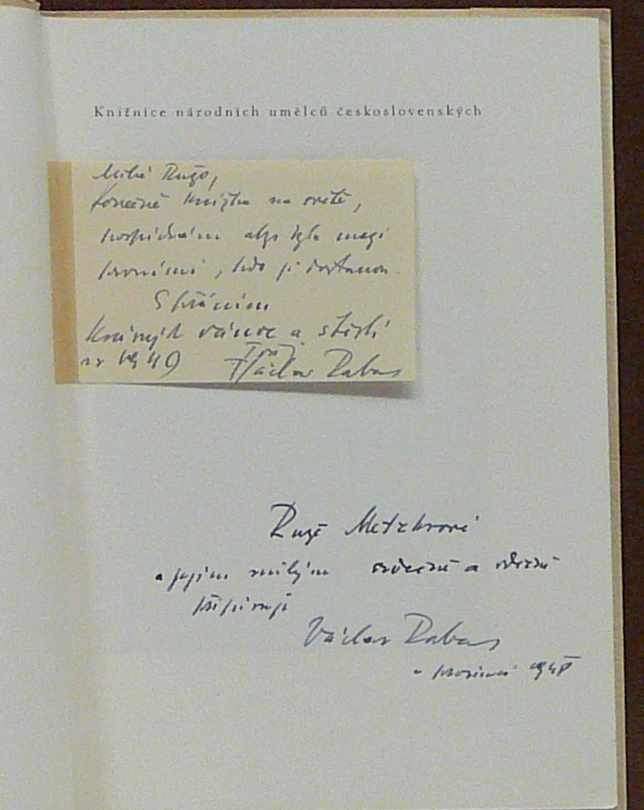 Knižnice národních umělců československých
Milá Růžo,
Konečně knížka na světě,
pospíchám aby byla mezi
prvními, kdo ji dostanou.
S přáním
krásných vánoc a štěstí
v r. 1949 Václav Rabas
Růže
a jejím milým srdečně a
připisuje
Václav Rabas
v prosinci 1948